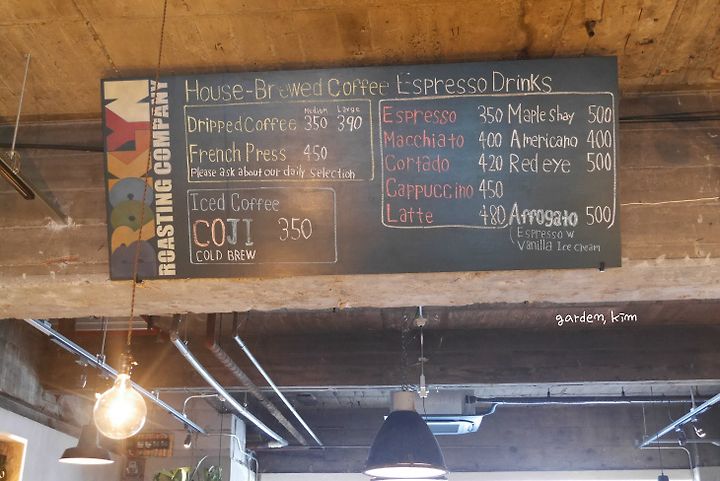 BROOKLYN
ROASTING COMPANY
House-Brewed Coffee
Medium Large
Dripped Coffee 350 390
French Press 450
Please ask about our daily selection
Iced Coffee
COJI 350
COLD BREW
Espresso Drinks
Espresso 350
Macchiato 400
Cortado 420
Cappuccino 450
Latte 480
Maple Shay 500
Americano 400
Red eye 500
Affogato 500
Espresso w
Vanilla Ice Cream
garden, kim